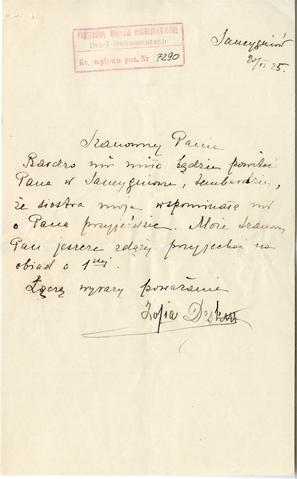 PAŃSTWOWE MUZEUM ARCHEOLOGICZNE
Dział Dokumentacji
Ks. wpływu poz. Nr 7290
Jancygniów
20/VI 25.
Szanowny Panie
Bardzo mi miło będzie powitać
Pana w Jancygniowie, tembardziej,
że siostra moja wspominała mi
o Pana przyjeździe. Może Szanowny
Pan jeszcze zdąży przyjechać na
obiad o 1szej.
Łączę wyrazy poważania
Zofia